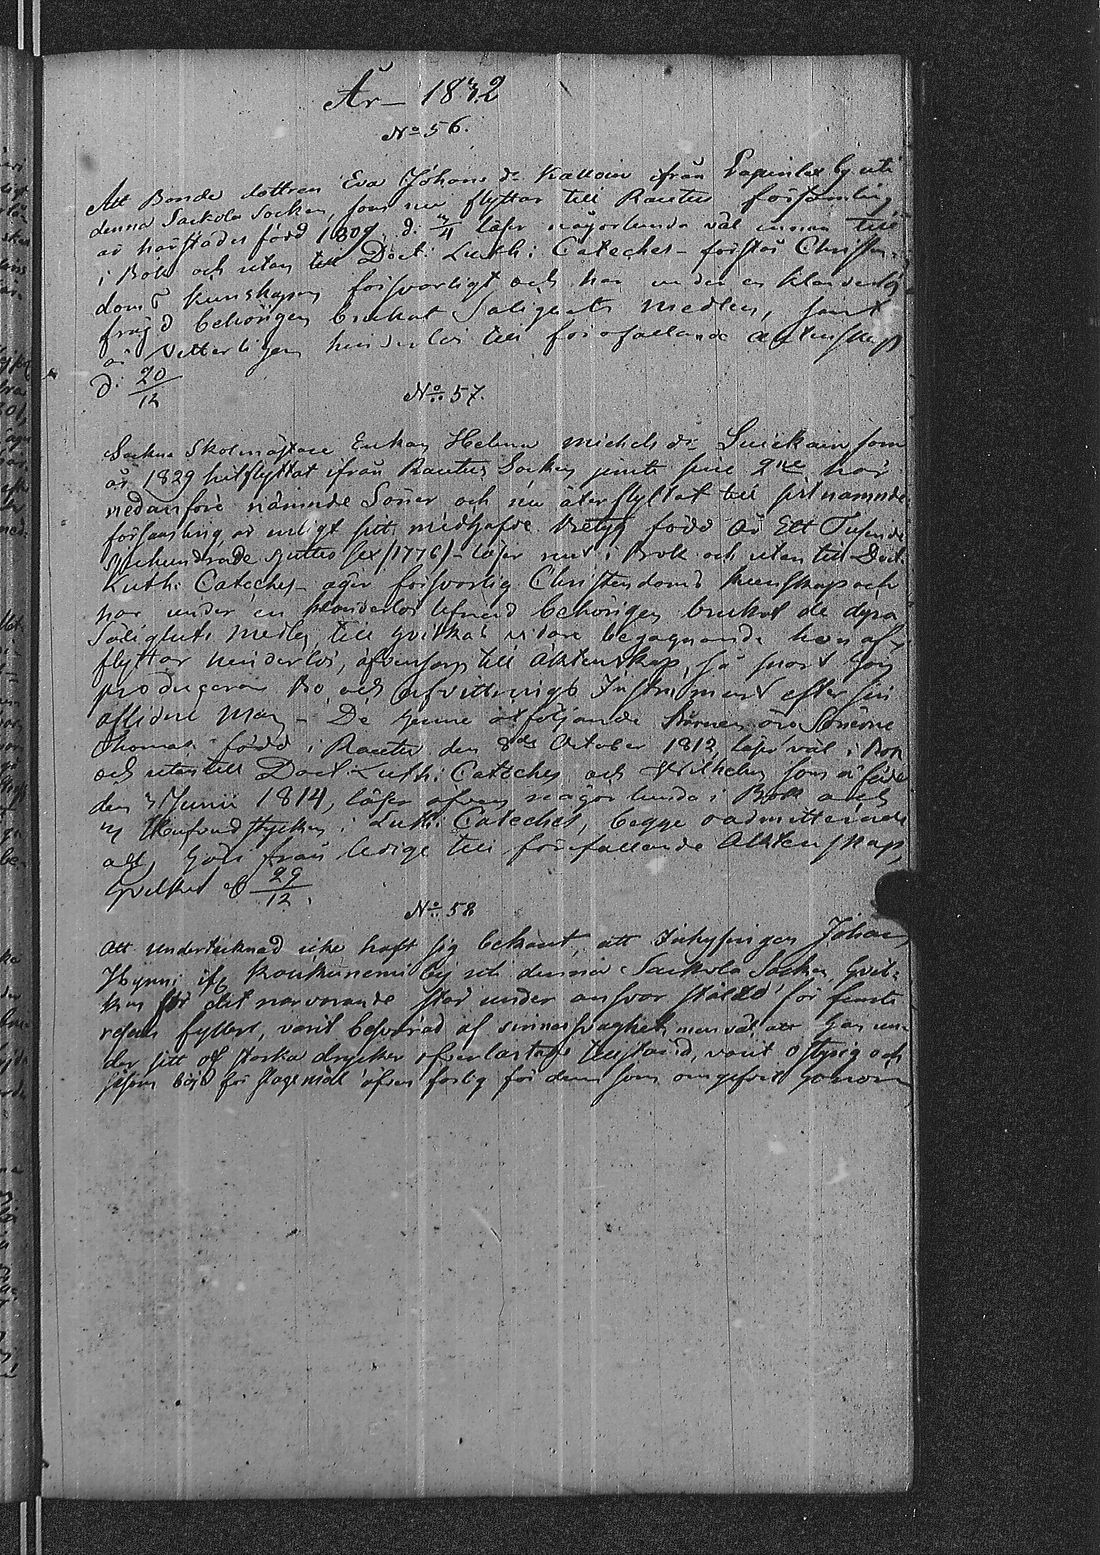 År 1832
No 56.
Att Bonde dottren Eva Johans dr Kallain ifrån Lapinlax by uti
denna Sackola Socken, som nu flyttar till Rautus församling
är härstädes född 1809, d. läser någorlunda väl innan till
i Bok och utan till Doct. Luth: Cateches - förstår Christen-
doms kunskapen försvarligt och har under en klanderlös
frägd behörigen brukat Salighets medlen, samt
är Vetterligen hinderlös till förefallande äktenskap
d. 20/12
No 57.
Sockne Skolmästare Enkan Helena Michels dr Suikain som
år 1829 hitflyttat ifrån Rautus Socken jemte sine 2ne här
nedanföre nämnde Söner och nu återflyttat till sistnämnde
församling är enligt sitt medhafde betyg född År Ett Tusende
Sjuhundrade Sjuttio sex (1776) - läser ner i Bok och utan till Doct.
Luth: Cateches - äger försvarlig Christendoms kunskap och
har under en klanderlös lefnad behörigen brukat de dyra
Salighets medlen till hvilkas vidare begagnande hon af-
flyttar hinderlös, äfvensom till Äktenskap, så snart hon
producerar Bo och afvittrings Instrument efter sin
aflidne Man - De henne åtföljande Börnen äro Sönerne
Thomas född i Rautus den 8de October 1812, läser väl i Bok
och utan till Doct. Luth: Cateches och Wilhelm som är född
den 3 Junii 1814, läser äfven någorlunda i Bok och
Hufvudstycken i Luth: Cateches, begge oadmitterade
all, Gods från ledige till förefallande Äktenskap,
hvilket 29/12.
No 58
Att undertecknad icke haft sig bekant, att Inhysingen Johan
Hynni ifr. Koukunemi by uti denna Sackola Socken, hvil-
ken för det närvarande står under ansvar ställd för
fylleri, varit besvärad af sinnessvaghet, men väl att han un-
der sitt af starka drycker öfverlastade tillstånd, varit ostyrig och
såsom böjd för slagsmål äfven farlig för dem som omgifvit honom